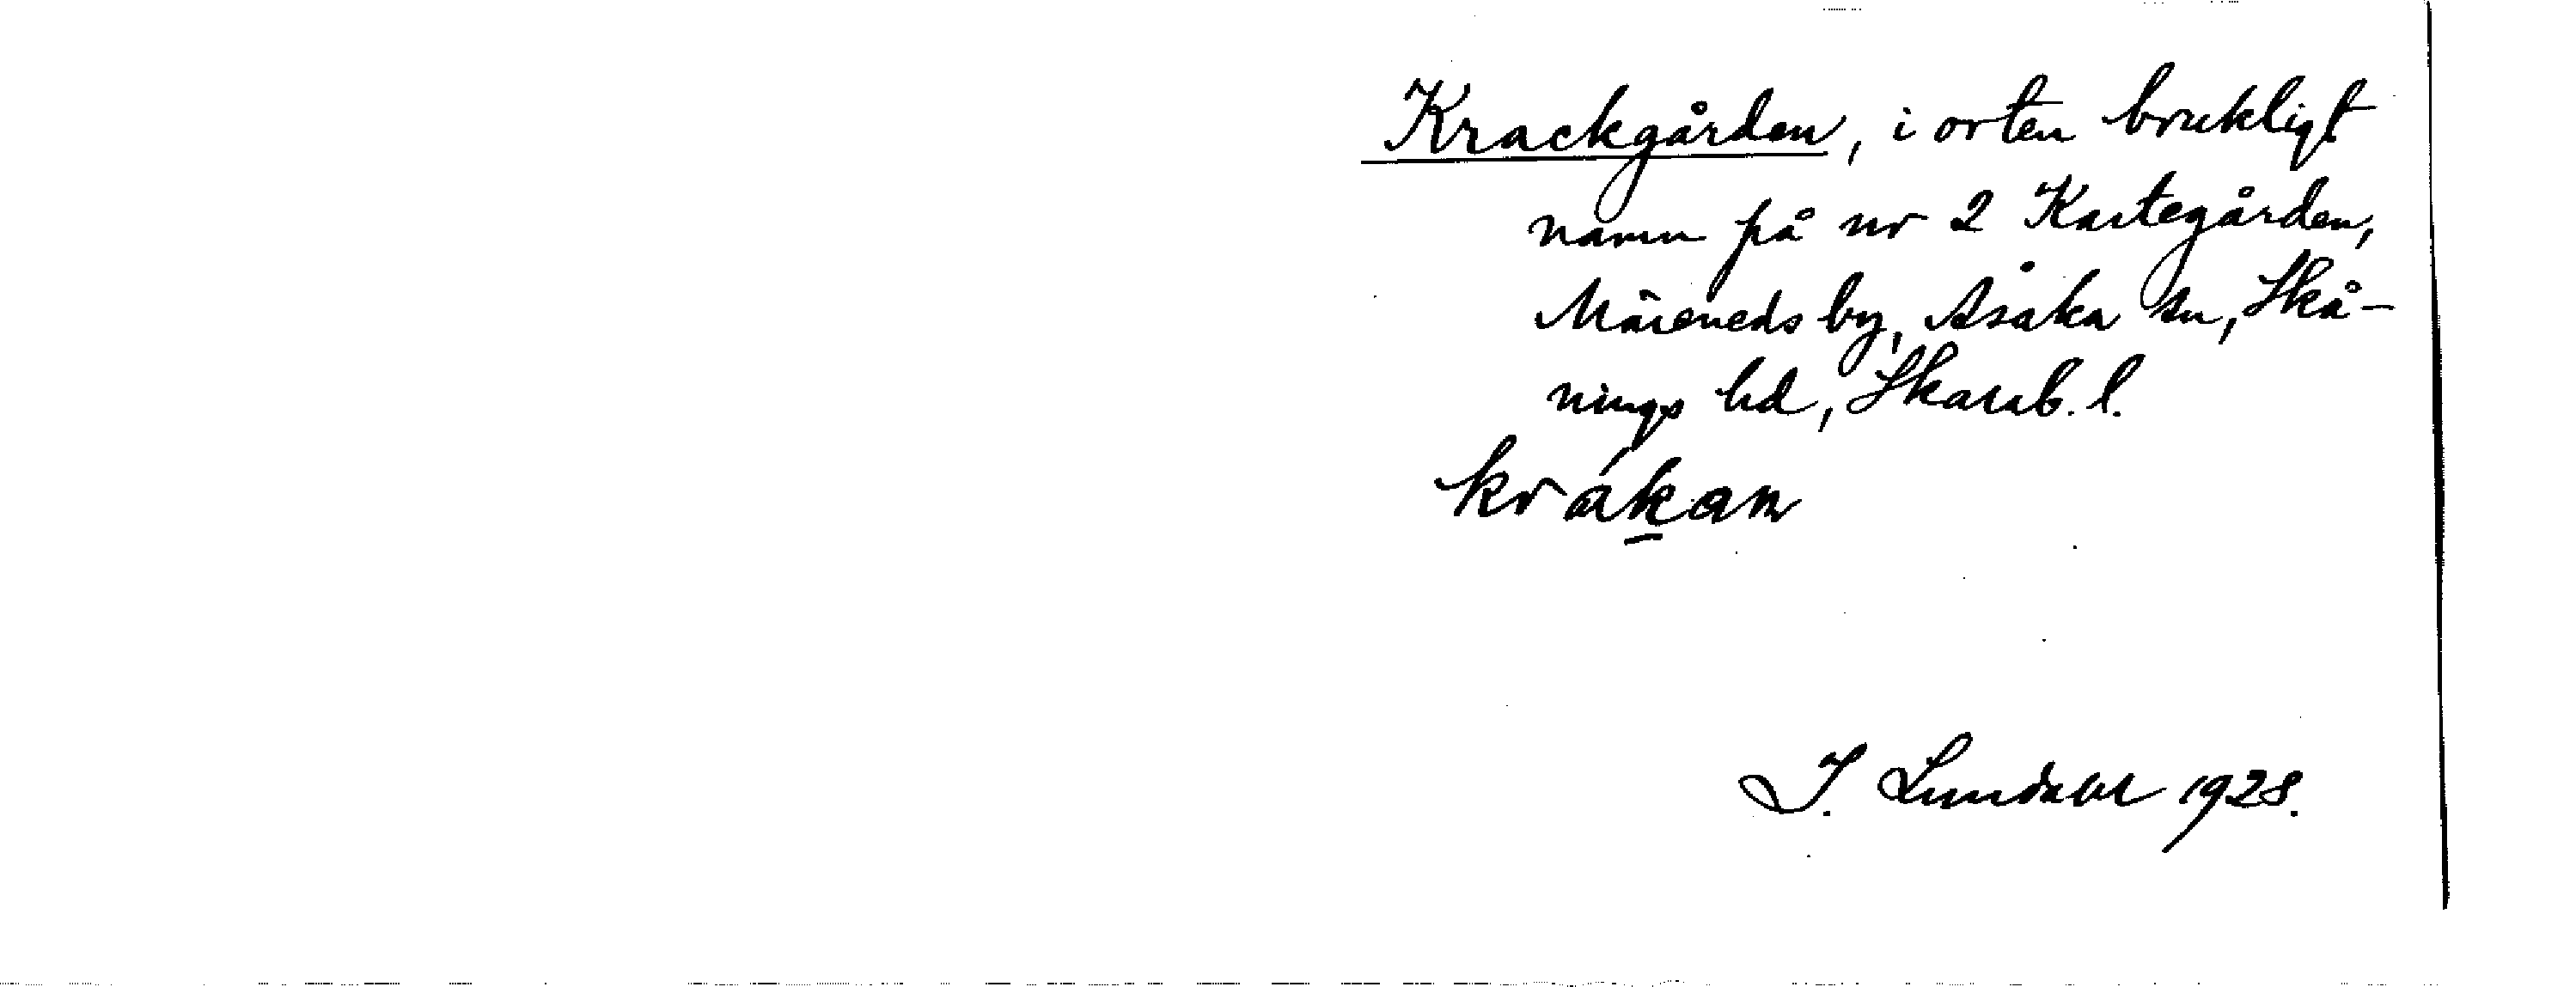 Krackgården, i orten brukligt
namn på nr 2 Kartegården,
Märeneds by, Åsaka sn, Skå-
nings hd, Skarab. l.
krákan
I. Lundahl 1928.